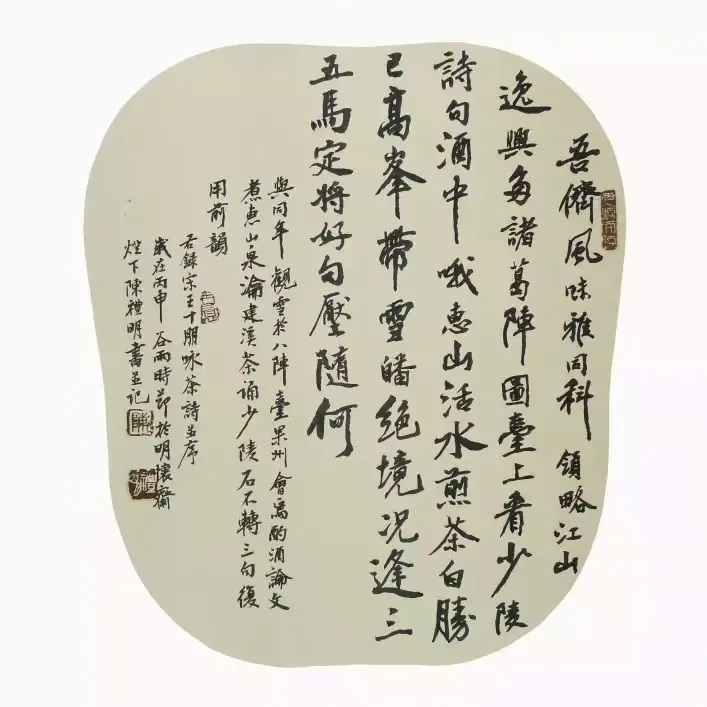 吾儕風味雅同科領略江山
逸興多諸葛陣圖臺上看少陵
詩句酒中哦惠山活水煎茶白勝
已高峯帶雪皤絕境況逢三
五馬定將好句壓隨何
與同年觀雪於八陣臺果州會焉酌酒論文
煮惠山泉瀹建溪茶誦少陵石不轉之句復
用前韻
右錄宋王十朋咏茶詩並序
歲在丙申谷雨時節於明懷齋
燈下陳禮明書並記